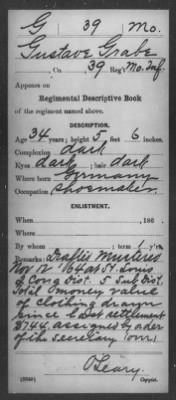 G 39 Mo.
Gustave Grabe
, Co. , 39 Reg't Mo. Inf.
Appears on
Regimental Descriptive Book
of the regiment named above.
DESCRIPTION.
Age 34 years; height 5 feet 6 inches.
Complexion dark
Eyes dark ; hair dark
Where born Germany
Occupation Shoemaker
ENLISTMENT.
When , 186 .
Where
By whom ; term 1 y'rs.
Remarks: Draftee Mustered
Nov 12 '64 at St. Louis
1 Cong Dist. 5 Sub Dist.
Total money value
of clothing drawn
since last settlement
$ 744. assigned by order
of the Secretary
O'Leary.
Copyist.